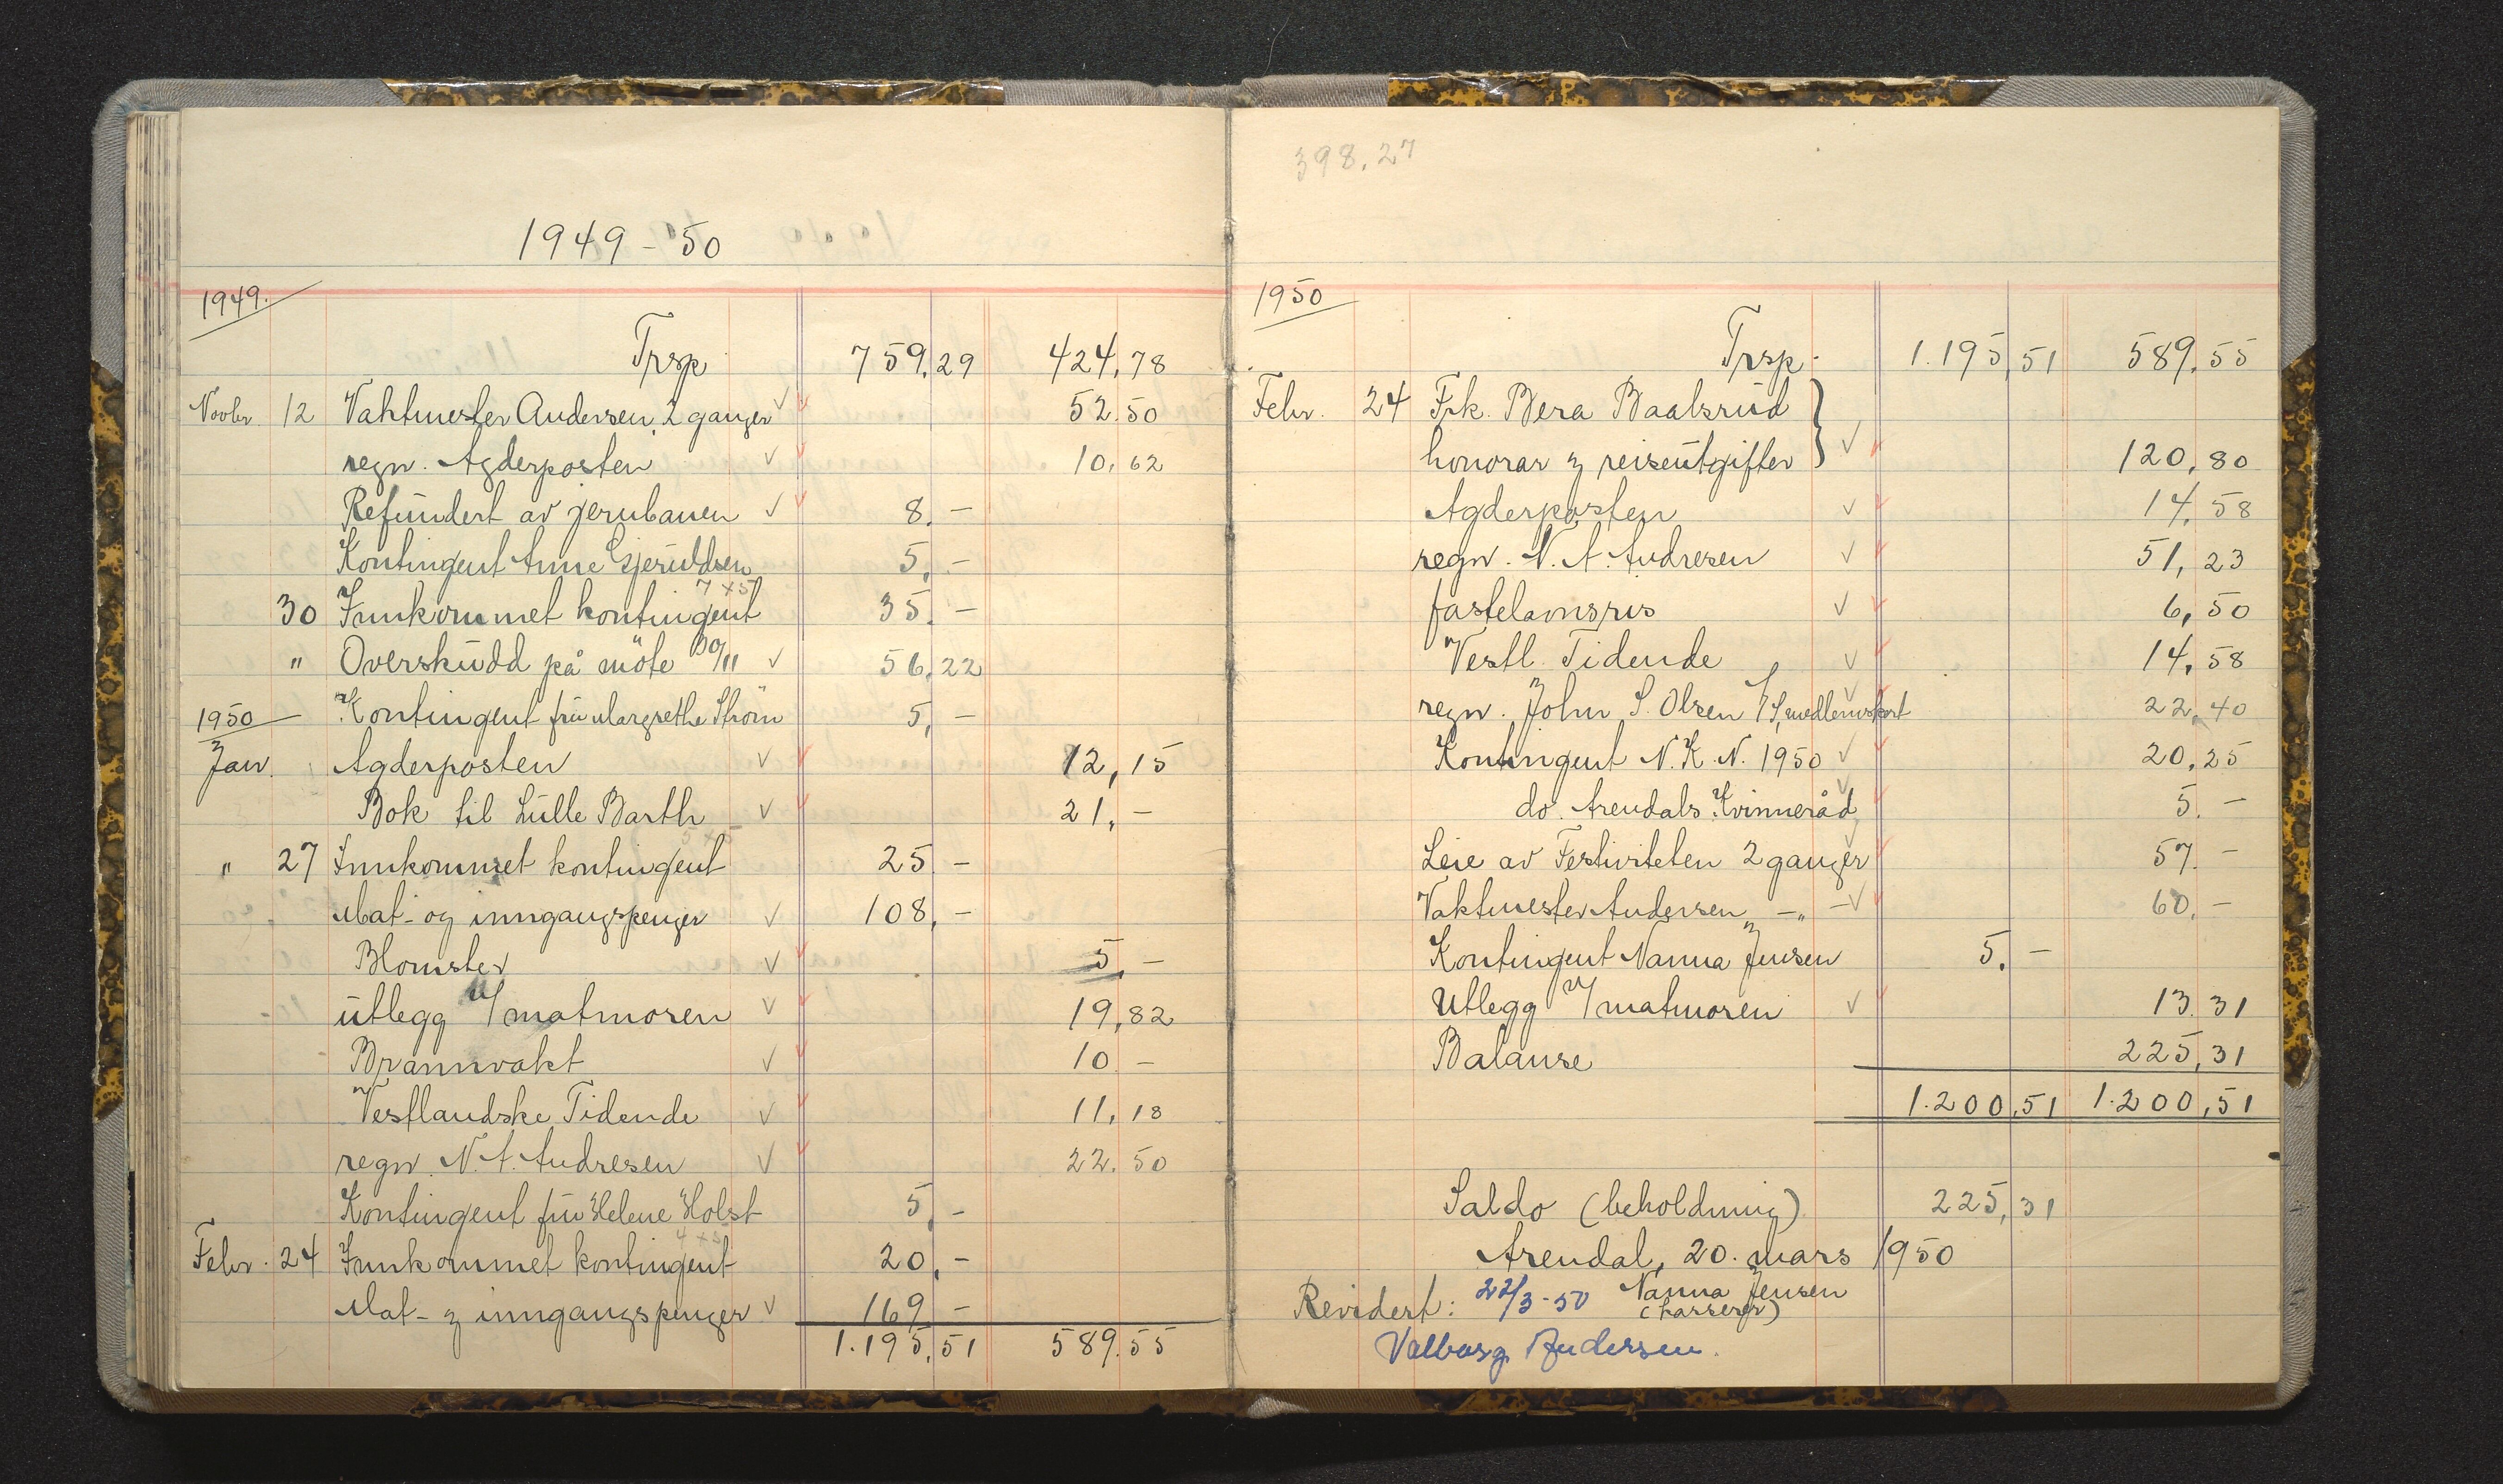 1949-50
1949.
Trsp 759,29 424,78
Novbr. 12 Vaktmester Andersen, 2 ganger 52.50
regn. Agderposten 10,62
Refundert av jernbanen 8,-
Kontingent Anne Gjeruldsen 5,-
7 x 5
30 Innkommet kontingent 35,-
" Overskudd på möte 30/11 56,22
1950 Kontingent fru Margrethe Ström 5,-
Jan. Agderposten 12,15
Bok til Lulle Barth 21,-
5 x 5
" 27 Innkommet kontingent 25,-
Mat- og inngangspenger 108,-
Blomster 5,-
utlegg v/ matmoren 19,82
Brannvakt 10 -
Vestlandske Tidende 11,18
regn. N. A. Andresen 22.50
Kontingent fru Helene Holst 5,-
4 x 5
Febr. 24 Innkommet kontingent 20,-
Mat- og inngangspenger 169 -
1.195,51 589.55
398.27
1950
Trsp. 1.195,51 589,55
Febr. 24 Frk. Bera Baalsrud
honorar og reiseutgifter 120,80
Agderposten 14,58
regn. N. A. Andresen 51,23
fastelavnsris 6,50
Vestl. Tidende 14,58
regn. John S. Olsen A/S, medlemskort 22,40
Kontingent N. K. N. 1950 20,25
do. Arendals Kvinneråd 5. -
Leie av Festiviteten 2 ganger 57. -
Vaktmester Andersen -"- 60,-
Kontingent Nanna Jensen 5,-
Utlegg v/ matmoren 13.31
Balanse 225,31
1.200,51 1.200,51
Saldo (beholdning) 225,31
Arendal, 20. mars 1950
Nanna Jensen
Revidert: 22/3-50 (kasserer)
Valborg Andersen.